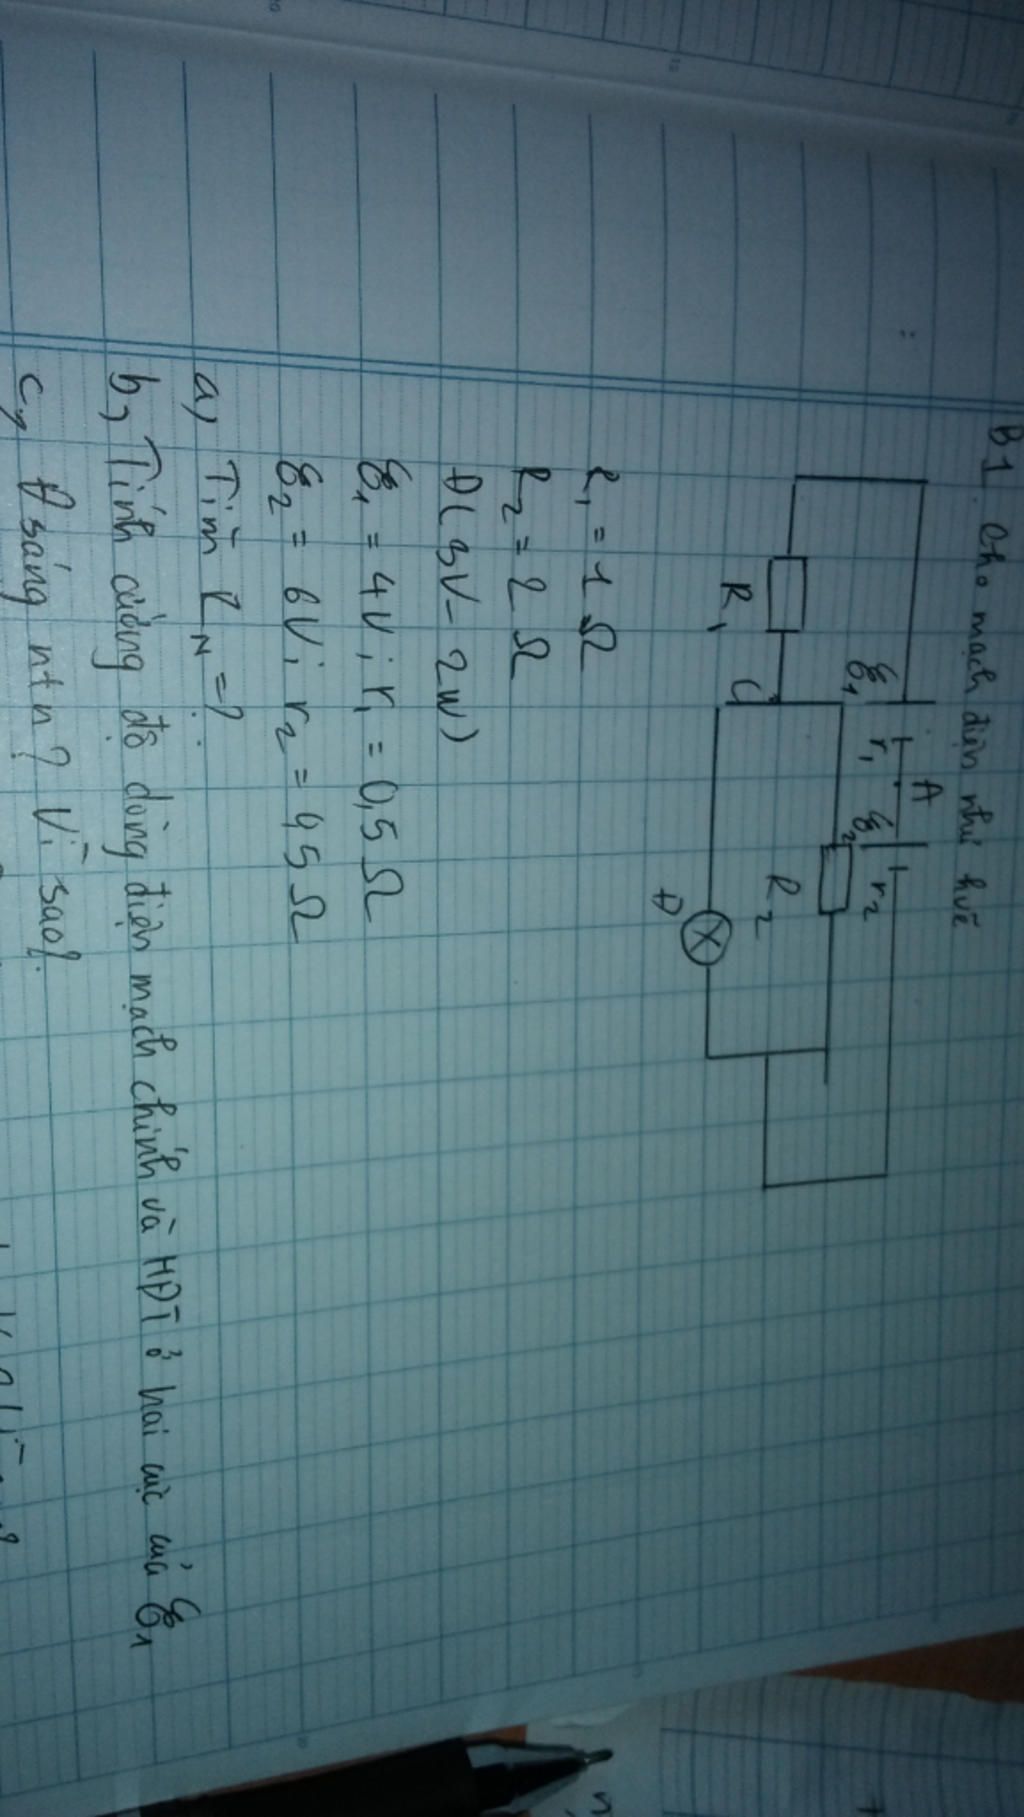 B1. Cho mạch điện như hvẽ
A
ξ1 r1 ξ2 r2
R2
R1 C
Đ
R1 = 1 Ω
R2 = 2 Ω
Đ(3V - 2W)
ξ1 = 4V; r1 = 0,5 Ω
ξ2 = 6V; r2 = Ω
a, Tìm RN = ?
b, Tính cường độ dòng điện mạch chính và HĐT ở hai cực của ξ1
c, Đ sáng ntn? Vì sao?